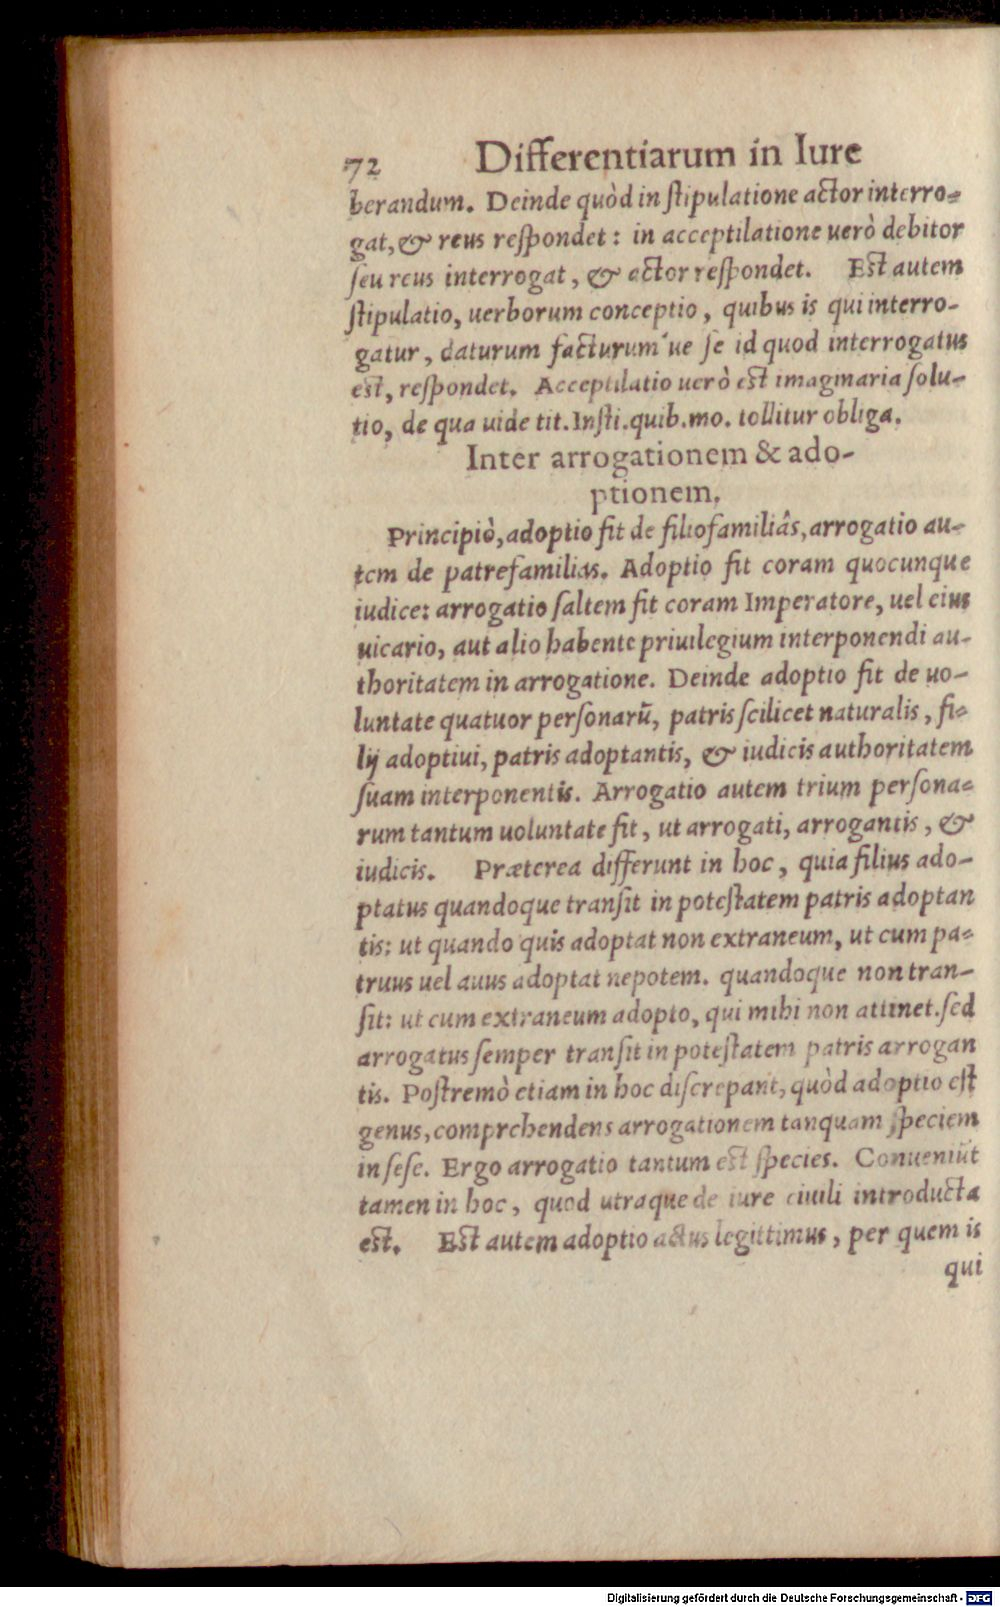 72 Differentiarum in Iure
berandum. Deinde quòd in ſtipulatione actor interro-
gat, & reus reſpondet: in acceptilatione uerò debitor
ſeu reus interrogat, & actor reſpondet. Eſt autem
ſtipulatio, uerborum conceptio, quibus is qui interro-
gatur, daturum facturum'ue ſe id quod interrogatus
eſt, reſpondet. Acceptilatio uerò eſt imaginaria ſolu-
tio, de qua uide tit. Inſti. quib. mo. tollitur obliga.
Inter arrogationem & ado-
ptionem.
Principiò, adoptio fit de filiofamiliâs, arrogatio au-
tem de patrefamilias. Adoptio fit coram quocunque
iudice: arrogatio ſaltem fit coram Imperatore, uel eius
uicario, aut alio habente priuilegium interponendi au-
thoritatem in arrogatione. Deinde adoptio fit de uo-
luntate quatuor perſonarū, patris ſcilicet naturalis, fi-
lij adoptiui, patris adoptantis, & iudicis authoritatem
ſuam interponentis. Arrogatio autem trium perſona-
rum tantum uoluntate fit, ut arrogati, arrogantis, &
iudicis. Præterea differunt in hoc, quia filius ado-
ptatus quandoque tranſit in poteſtatem patris adoptan
tis: ut quando quis adoptat non extraneum, ut cum pa-
truus uel auus adoptat nepotem. quandoque non tran-
ſit: ut cum extraneum adopto, qui mihi non attinet. ſed
arrogatus ſemper tranſit in poteſtatem patris arrogan
tis. Poſtremò etiam in hoc diſcrepant, quòd adoptio eſt
genus, comprehendens arrogationem tanquam ſpeciem
in ſeſe. Ergo arrogatio tantum eſt ſpecies. Conueniūt
tamen in hoc, quod utraque de iure ciuili introducta
eſt. Eſt autem adoptio actus legittimus, per quem is
qui
Digitalisierung gefördert durch die Deutsche Forschungsgemeinschaft - DFG